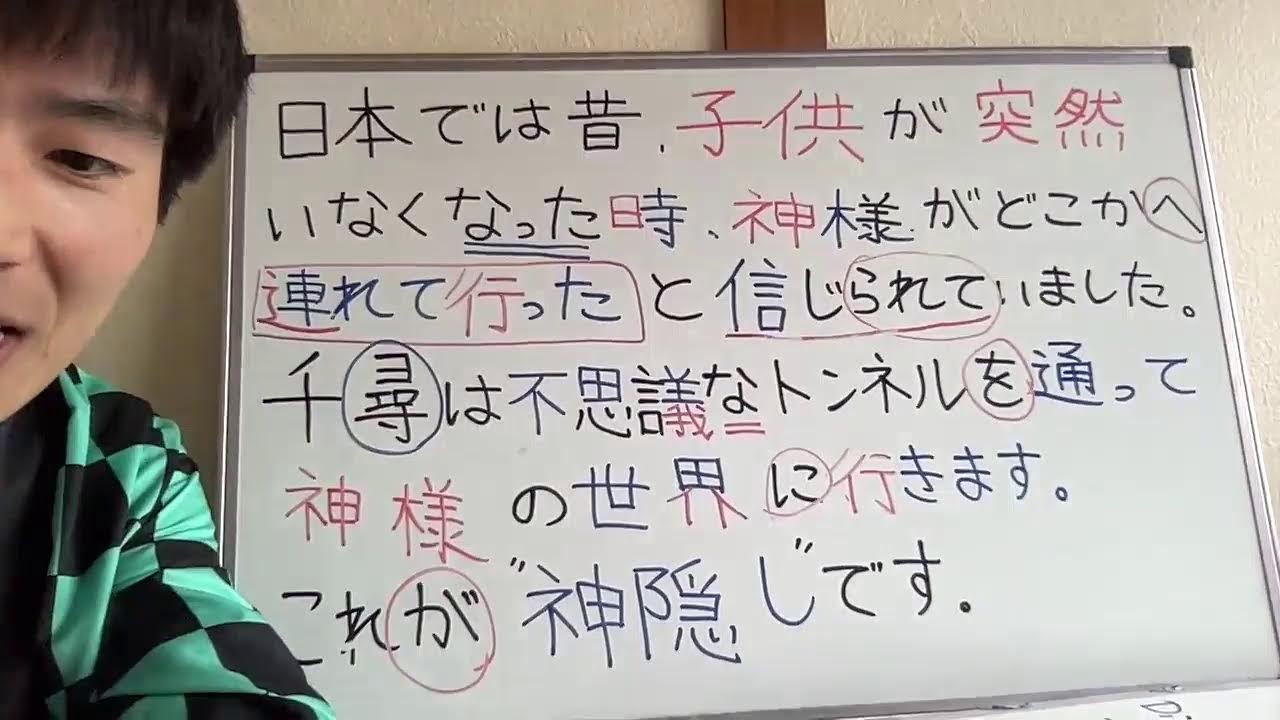 日本では昔、子供が突然
いなくなった時、神様がどこかへ
連れて行ったと信じられていました。
千尋は不思議なトンネルを通って
神様の世界に行きます。
これが"神隠し"です。